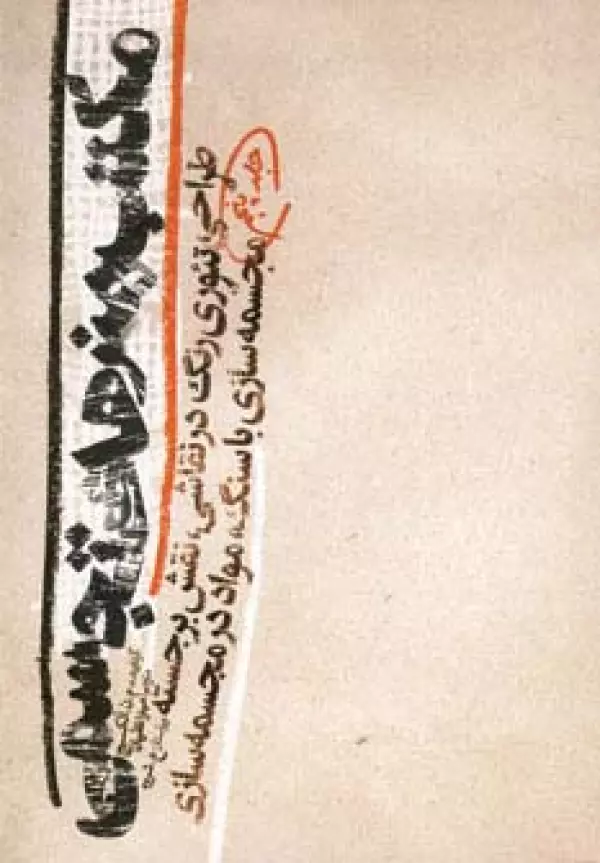 مکتب هنرهای تجسمی
طراحی، تئوری رنگ در نقاشی، نقش برجسته
مجسمه سازی با سنگ، مواد در مجسمه سازی
جلد پنجم